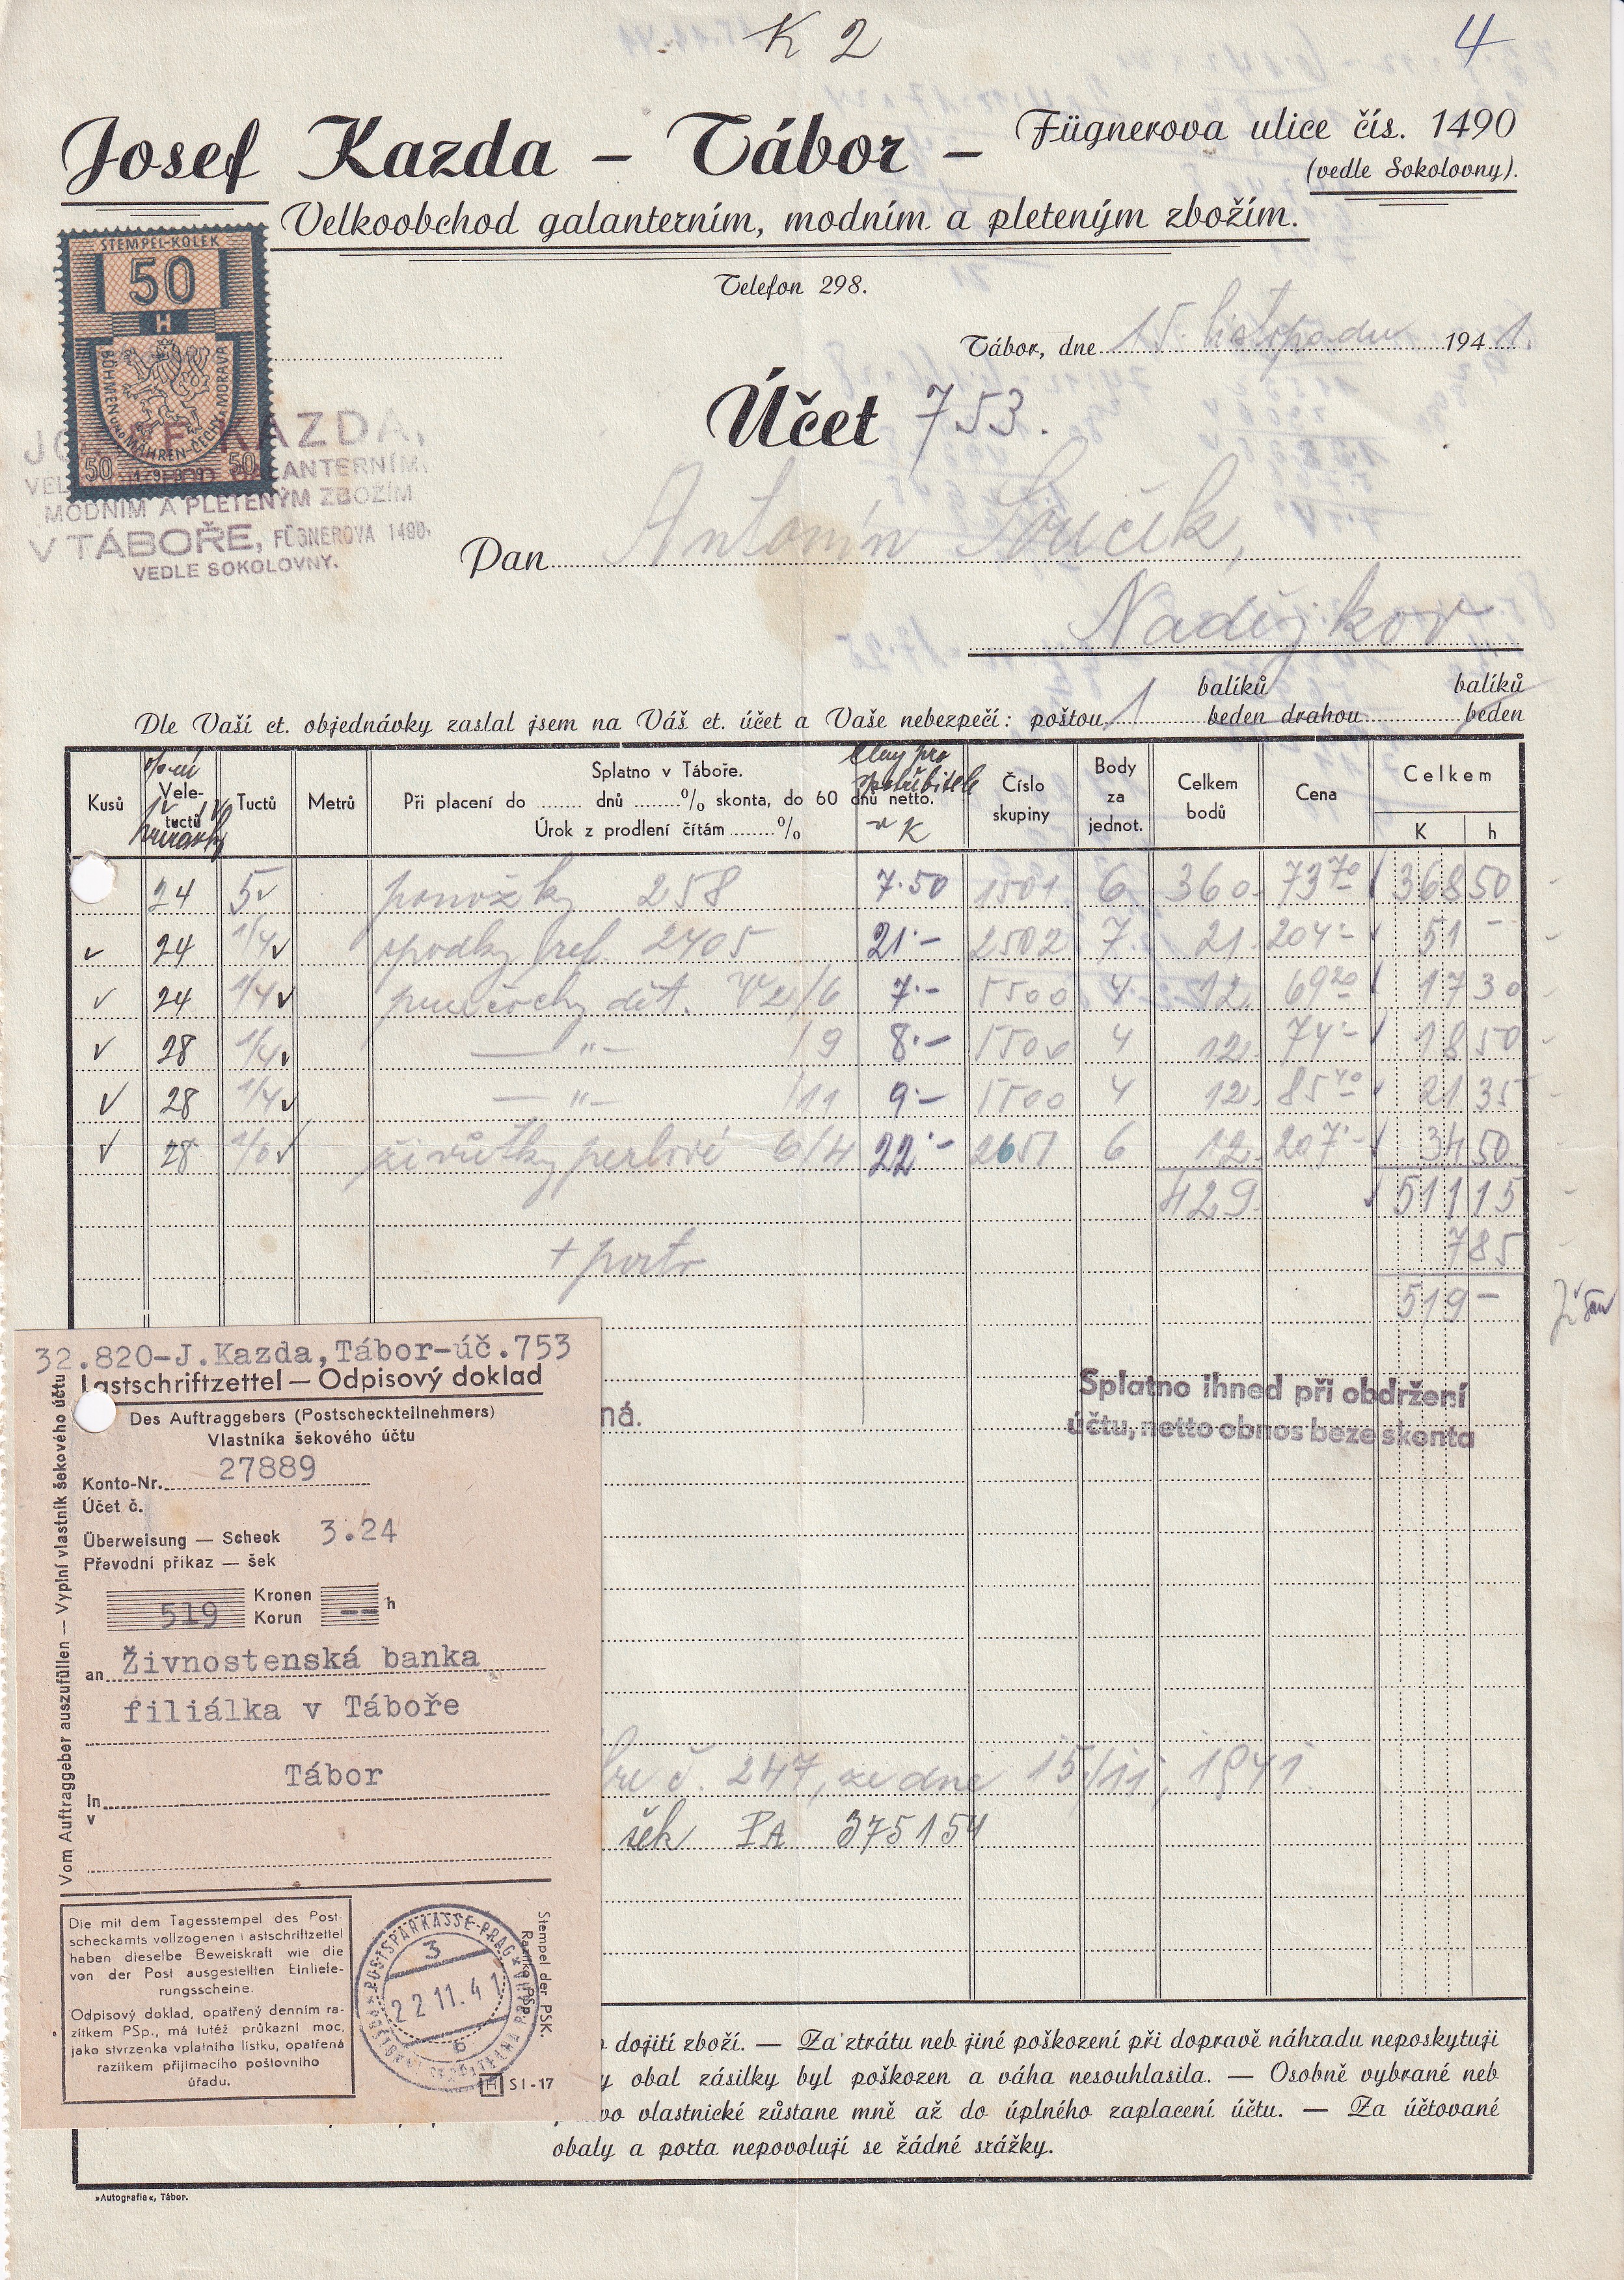 K 2
4
Josef Kazda – Tábor –
Fügnerova ulice čís. 1490
(vedle Sokolovny).
Velkoobchod galanterním, modním a pleteným zbožím.
Telefon 298.
STEMPEL-KOLEK
50
H
BÖHMEN UND MÄHREN-ČECHY A MORAVA
50 50
KAZDA,
ANTERNÍM,
MODNÍM A PLETENÝM ZBOŽÍM
V TÁBOŘE, FÜGNEROVA 1490,
VEDLE SOKOLOVNY.
Tábor, dne 15. listopadu 1941.
Účet 753.
Pan Antonín Souček,
Nadějkov
Dle Vaší ct. objednávky zaslal jsem na Váš ct. účet a Vaše nebezpečí: poštou 1 balíků beden drahou balíků beden
Kusů Vele-tuctů Tuctů Metrů
Splatno v Táboře.
Při placení do ....... dnů .......% skonta, do 60 dnů netto.
Úrok z prodlení čítám ........%
Ceny pro spotřebitele v K
Číslo skupiny Body za jednot. Celkem bodů Cena Celkem K h
24 5 ponožky 258 7·50 1501 6 360 73 70 368 50
24 1/4 spodky 2405 21·– 2502 7 21 204·– 51 –
24 1/4 punčochy dět. V2/6 7·– 5500 4 12 69 20 17 30
28 1/4 — " — /9 8·– 5500 4 12 74·– 18 50
28 1/4 — " — /11 9·– 5500 4 12 85 40 21 35
28 1/6 živůtky perlové 6/4 22·– 2651 6 12 207·– 34 50
429 511 15
+ porto 7 85
519 –
ná.
Splatno ihned při obdržení
účtu, netto obnos beze skonta
32.820-J.Kazda,Tábor-úč.753
Lastschriftzettel — Odpisový doklad
Des Auftraggebers (Postscheckteilnehmers)
Vlastníka šekového účtu
Konto-Nr. 27889
Účet č.
Überweisung — Scheck 3.24
Převodní příkaz — šek
519 Kronen Korun -- h
an Živnostenská banka
filiálka v Táboře
Tábor
In
v
Vom Auftraggeber auszufüllen — Vyplní vlastník šekového účtu
Die mit dem Tagesstempel des Post-
scheckamts vollzogenen Lastschriftzettel
haben dieselbe Beweiskraft wie die
von der Post ausgestellten Einliefe-
rungsscheine.
Odpisový doklad, opatřený denním ra-
zítkem PSp., má tutéž průkazní moc,
jako stvrzenka vplatního lístku, opatřená
razítkem přijímacího poštovního
úřadu.
POSTSPARKASSE-PRAG
3
22 11. 41
6
Stempel der PSK.
Razítko PSp.
H S I-17
č. 247, ze dne 15/11, 1941.
šek PA 375154
dojití zboží. — Za ztrátu neb jiné poškození při dopravě náhradu neposkytuji
y obal zásilky byl poškozen a váha nesouhlasila. — Osobně vybrané neb
vo vlastnické zůstane mně až do úplného zaplacení účtu. — Za účtované
obaly a porta nepovolují se žádné srážky.
»Autografia«, Tábor.